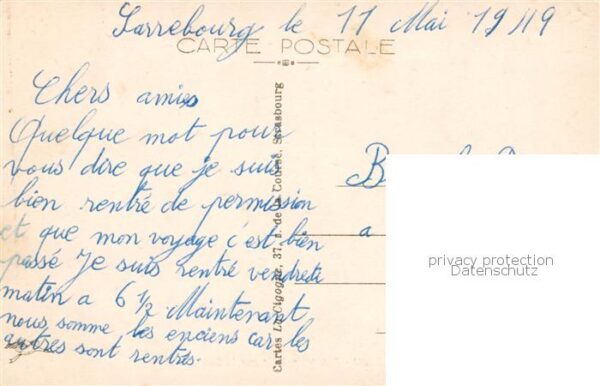 Sarrebourg le 11 Mai 1949
CARTE POSTALE
Chers amis
Quelque mot pour
vous dire que je suis
bien rentré de permission
et que mon voyage c'est bien
passé Je suis rentré vendredi
matin a 6 ½ Maintenant
nous somme les enciens car les
autres sont rentrés.
Cartes La Cigogne, 37, r. de la Course, Strasbourg
a
privacy protection
Datenschutz